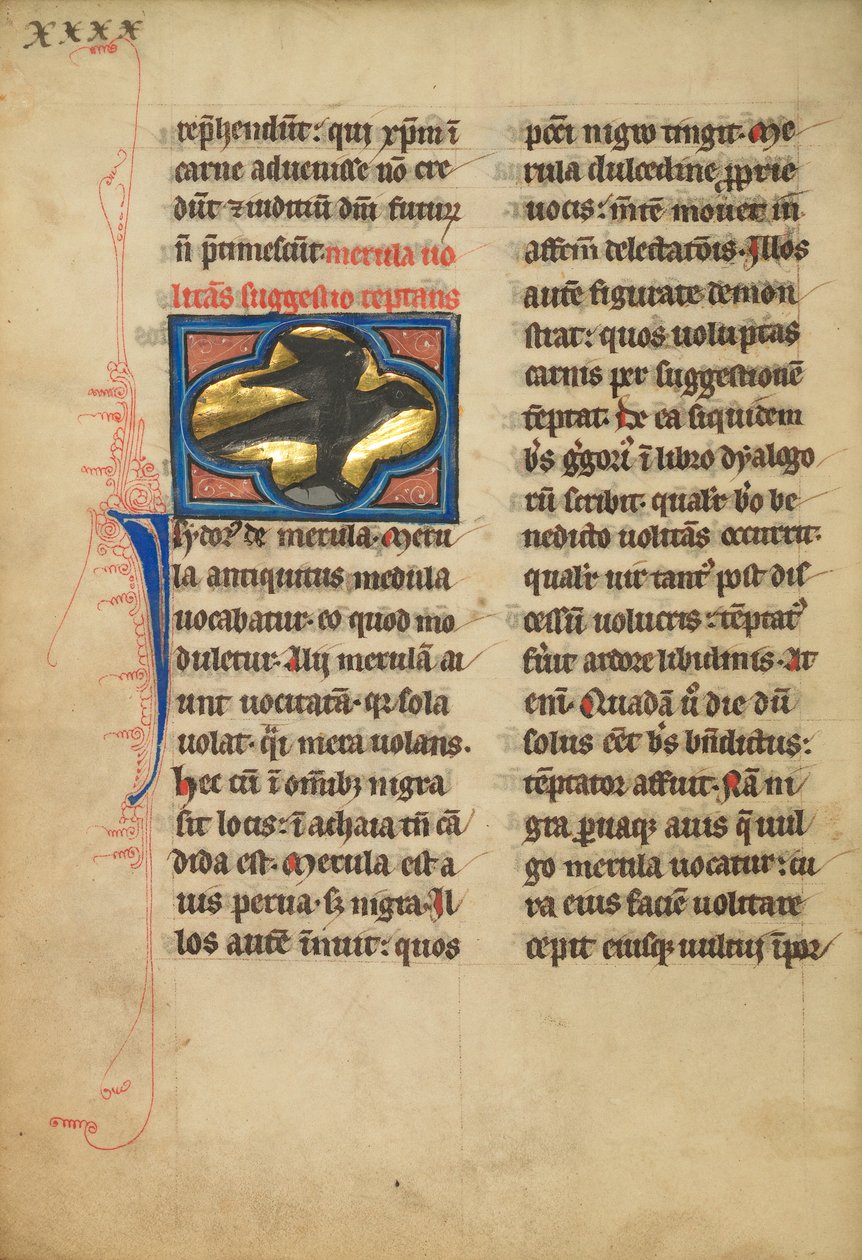 xxxx
rep̄hendūt: qui xp̄m ī
carne aduenisse nō cre
dūt ⁊ iuditiū dn̄i futuꝝ
n̄ p̄timescūt. merula uo
litās suggestio teptans
Isydorꝰ de merula. Meru
la antiquitus medula
uocabatur. eo quod mo
duletur. Alij merulā ai
unt uocitatā. qꝛ sola
uolat. q̄i mera uolans.
hec cū ī om̄ibꝫ nigra
sit locis: ī achaia tn̄ cā
dida est. Merula est a
uis perua. sꝫ nigra. Il
los autē īnuit: quos
pcc̄i nigro tingit. Me
rula dulcedine ꝓprie
uocis: m̄tē mouet in
affcm̄ delectatōis. Illos
autē figurate demon
strat: quos uoluptas
carnis per suggestionē
tēptat. De ea siquidem
b̄s gͥgoriꝰ ī libro dyalogo
rū scribit. qualr̄ b̄o be
nedicto uolitās occurrit.
qualr̄ uir tantꝰ post dis
cessū uolucris: tēptatꝰ
fūit ardore libidinis. At
enī. Quadā u͛o die dū
solus eēt b̄s bn̄dictus:
tēptator affuit. Nā ni
gra ꝑuaqꝫ auis q̄ uul
go merula uocatur: cir
ca eius faciē uolitare
cepit eiusqꝫ uultui īpor